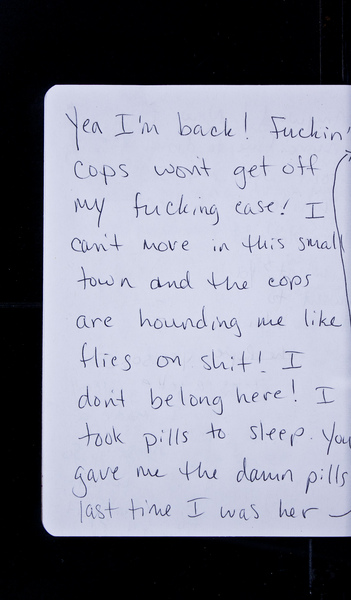 Yea I'm back! Fuckin'
cops won't get off
my fucking case! I
can't move in this small
town and the cops
are hounding me like
flies on shit! I
don't belong here! I
took pills to sleep. You
gave me the damn pills
last time I was her